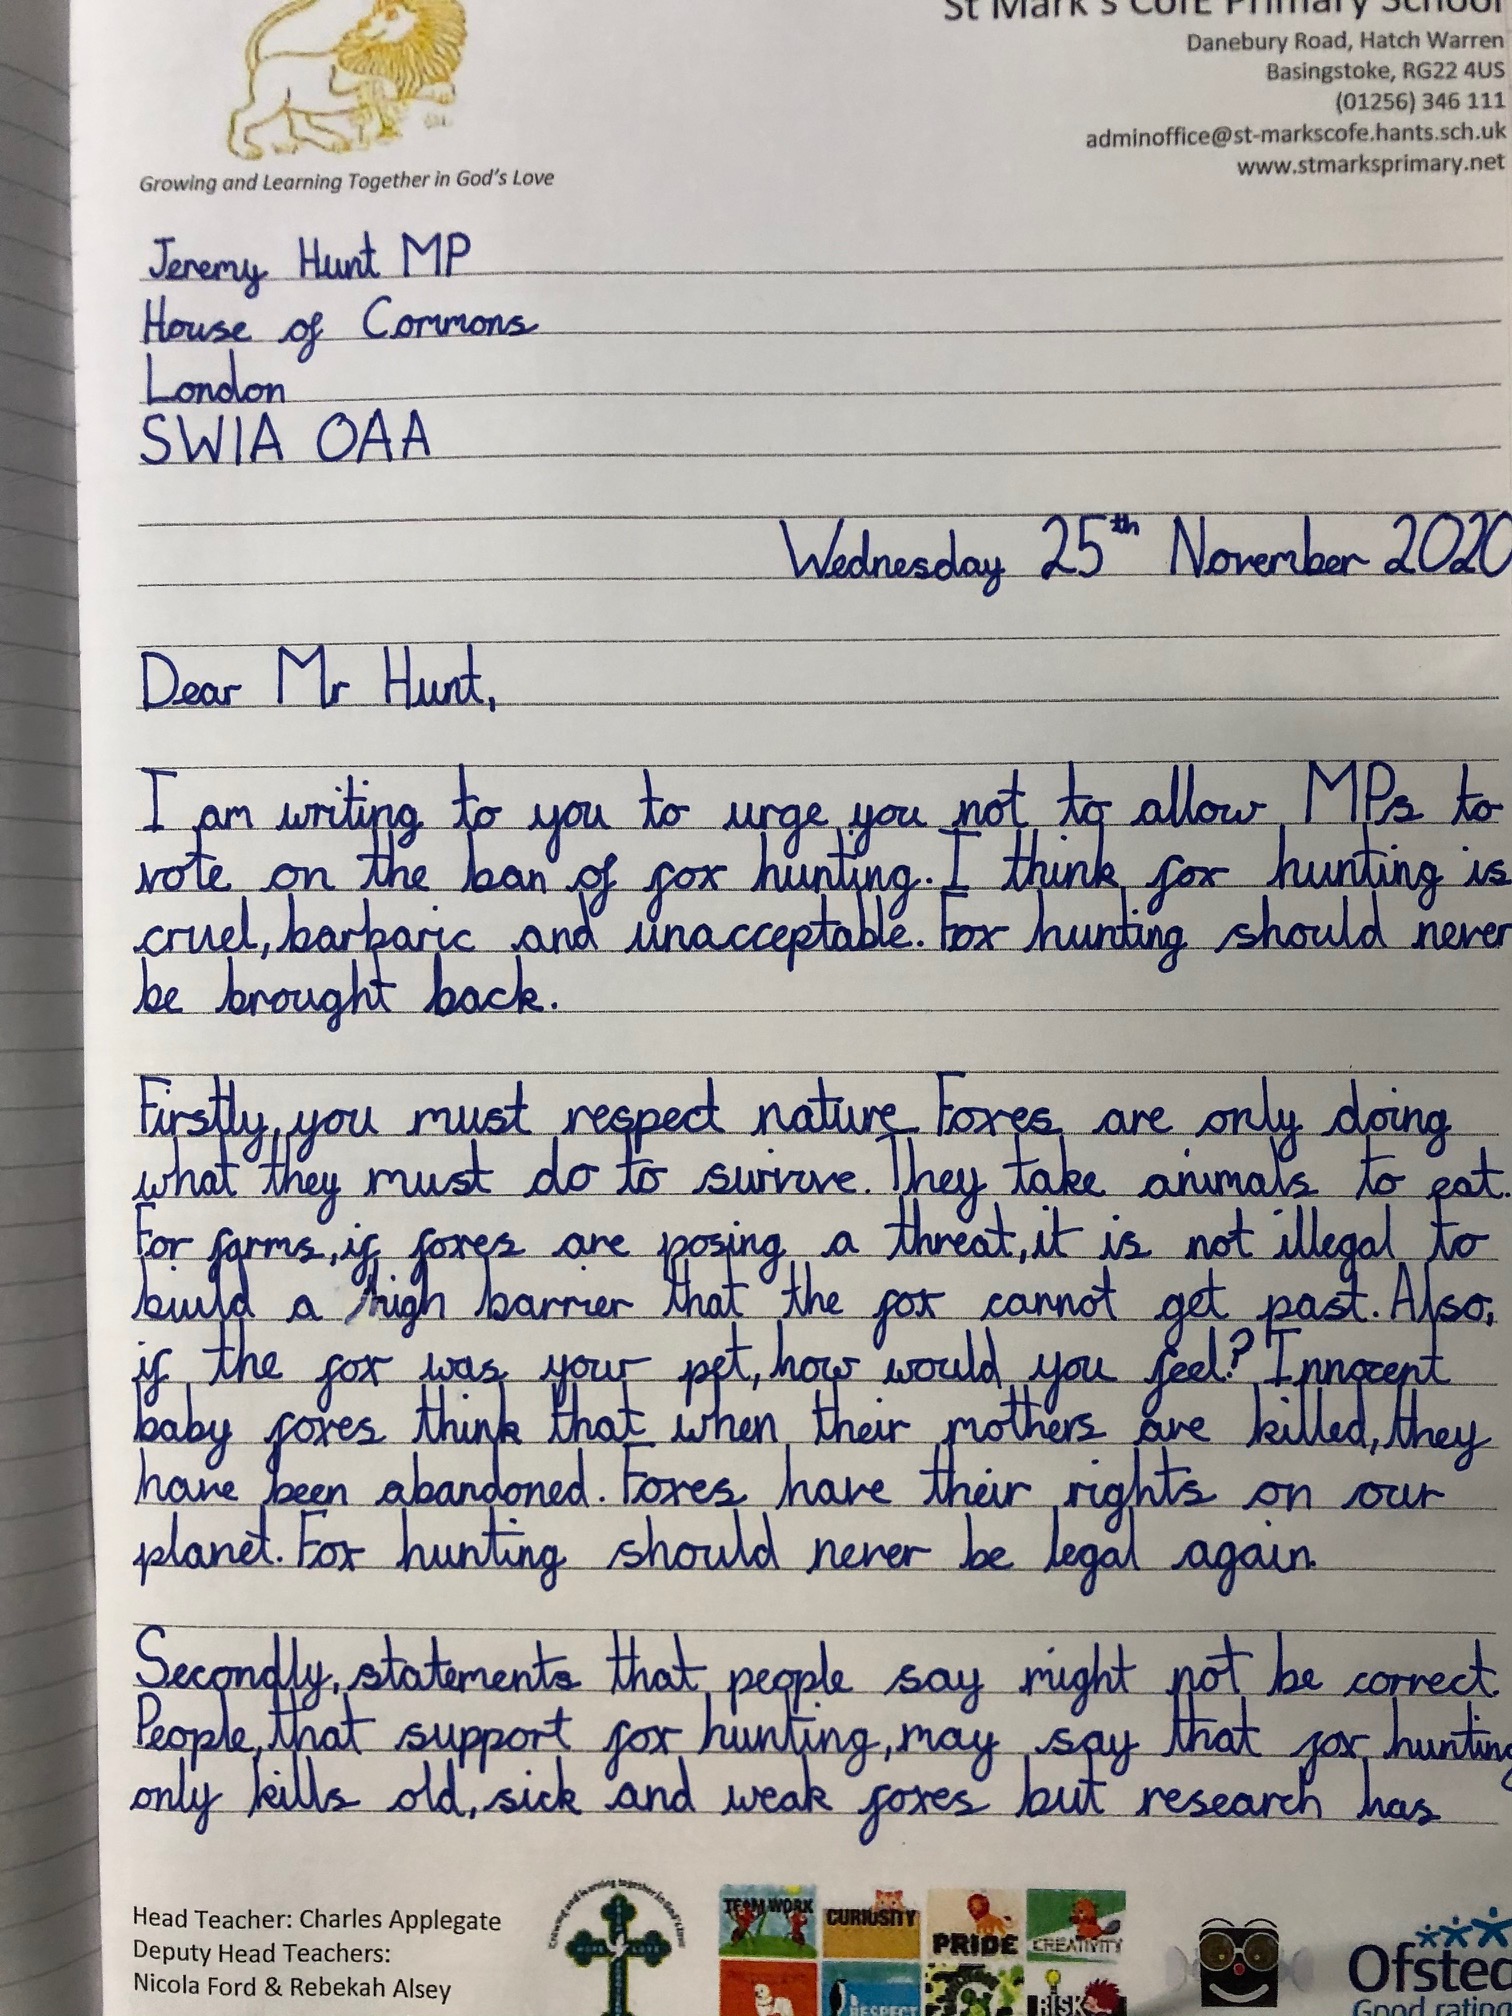 St Mark's CofE Primary School
Danebury Road, Hatch Warren
Basingstoke, RG22 4US
(01256) 346 111
adminoffice@st-markscofe.hants.sch.uk
www.stmarksprimary.net
Growing and Learning Together in God's Love
Jeremy Hunt MP
House of Commons
London
SW1A OAA
Wednesday 25th November 2020
Dear Mr Hunt,
I am writing to you to urge you not to allow MPs to
vote on the ban of fox hunting. I think fox hunting is
cruel, barbaric and unacceptable. Fox hunting should never
be brought back.
Firstly, you must respect nature. Foxes are only doing
what they must do to survive. They take animals to eat.
For farms, if foxes are posing a threat, it is not illegal to
build a high barrier that the fox cannot get past. Also,
if the fox was your pet, how would you feel? Innocent
baby foxes think that when their mothers are killed, they
have been abandoned. Foxes have their rights on our
planet. Fox hunting should never be legal again.
Secondly, statements that people say might not be correct.
People, that support fox hunting, may say that fox hunting
only kills old, sick and weak foxes but research has
Head Teacher: Charles Applegate
Deputy Head Teachers:
Nicola Ford & Rebekah Alsey
Growing and learning together in God's love
TEAMWORK
CURIOSITY
PRIDE
CREATIVITY
RESPECT
RISK
Ofsted
Good rating